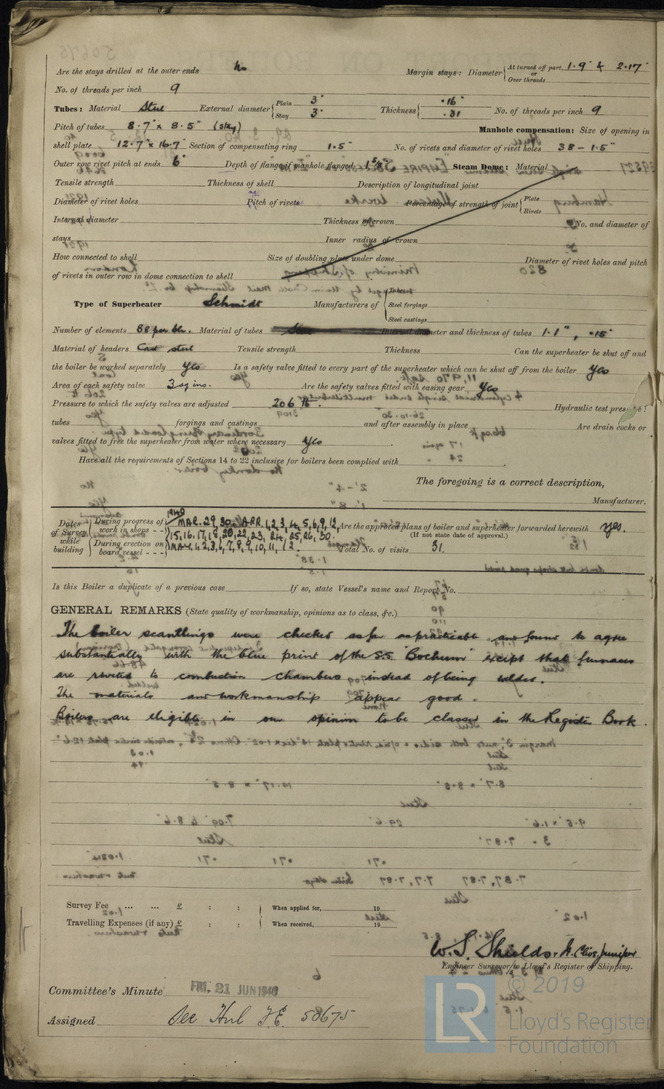 Are the stays drilled at the outer ends No Margin stays: Diameter { At turned off part, or Over threads 1·9" & 2·17"
No. of threads per inch 9
Tubes: Material Steel External diameter { Plain 3" Stay 3" Thickness { ·16" ·31 No. of threads per inch 9
Pitch of tubes 8·7" x 8·5" (stay) Manhole compensation: Size of opening in
shell plate 12·7" x 16·7" Section of compensating ring 1·5" No. of rivets and diameter of rivet holes 38 - 1·5"
Outer row rivet pitch at ends 6" Depth of flange if manhole flanged Steam Dome: Material
Tensile strength Thickness of shell Description of longitudinal joint
Diameter of rivet holes Pitch of rivets Percentage of strength of joint { Plate Rivets
Internal diameter Thickness of crown No. and diameter of
stays Inner radius of crown
How connected to shell Size of doubling plate under dome Diameter of rivet holes and pitch
of rivets in outer row in dome connection to shell
Type of Superheater Schmidt Manufacturers of { Tubes Steel forgings Steel castings
Number of elements 88 per blr. Material of tubes Internal diameter and thickness of tubes 1·1", ·15"
Material of headers Cast steel Tensile strength Thickness Can the superheater be shut off and
the boiler be worked separately Yes Is a safety valve fitted to every part of the superheater which can be shut off from the boiler Yes
Area of each safety valve 3 sq ins. Are the safety valves fitted with easing gear Yes
Pressure to which the safety valves are adjusted 206 lb Hydraulic test pressure:
tubes forgings and castings and after assembly in place Are drain cocks or
valves fitted to free the superheater from water where necessary Yes
Have all the requirements of Sections 14 to 22 inclusive for boilers been complied with
The foregoing is a correct description,
Manufacturer.
Dates of Survey while building { During progress of work in shops - - 1946 MAR. 29, 30. APR. 1, 2, 3, 4, 5, 6, 9, 12, Are the approved plans of boiler and superheater forwarded herewith Yes.
15, 16, 17, 18, 20, 22, 23, 24, 25, 26, 30. (If not state date of approval.)
During erection on board vessel - - - MAY. 1, 2, 3, 6, 7, 8, 9, 10, 11, 12. Total No. of visits 31.
Is this Boiler a duplicate of a previous case If so, state Vessel's name and Report No.
GENERAL REMARKS (State quality of workmanship, opinions as to class, &c.)
The boiler scantlings were checked as far as practicable and found to agree
substantially with the blue print of the SS "Bochum" except that furnaces
are riveted to combustion chambers instead of being welded.
The materials and workmanship appear good.
Boilers are eligible in our opinion to be classed in the Register Book.
Survey Fee ... ... £ : : When applied for, 19
Travelling Expenses (if any) £ : : When received, 19
W. S. Shields
Engineer Surveyor to Lloyd's Register of Shipping.
Committee's Minute FRI. 21 JUN 1946
Assigned See Hul F.E. 58675
LR © 2019
Lloyd's Register
Foundation